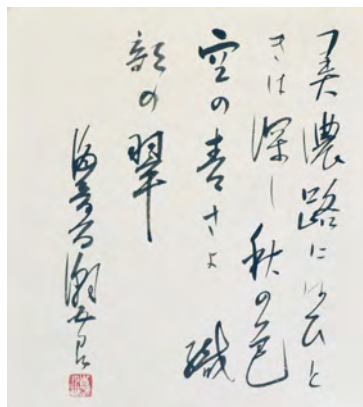 美濃路にはひと
きは深し秋の色
空の青さよ 織
部の翠
海音寺潮五郎